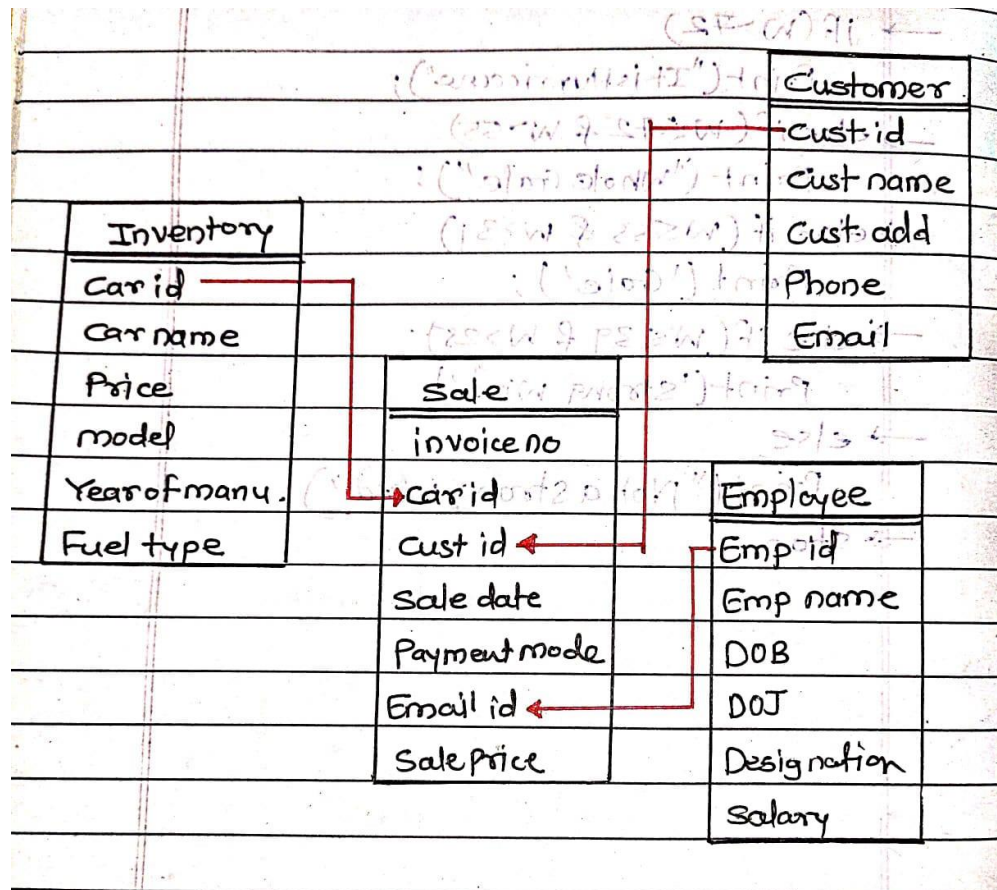 Customer
cust id
cust name
cust add
Phone
Email
Inventory
Car id
Car name
Price
model
Year of manu.
Fuel type
Sale
invoice no
car id
cust id
Sale date
Payment mode
Email id
Sale Price
Employee
Emp id
Emp name
DOB
DOJ
Designation
Salary